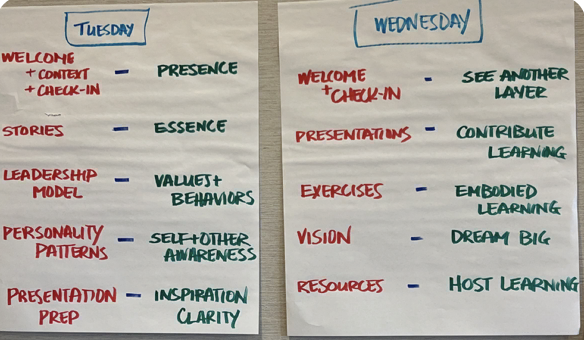 TUESDAY
WELCOME
+ CONTEXT - PRESENCE
+ CHECK-IN
STORIES - ESSENCE
LEADERSHIP - VALUES +
MODEL BEHAVIORS
PERSONALITY - SELF + OTHER
PATTERNS AWARENESS
PRESENTATION - INSPIRATION
PREP CLARITY
WEDNESDAY
WELCOME - SEE ANOTHER
+ CHECK-IN LAYER
PRESENTATIONS - CONTRIBUTE
LEARNING
EXERCISES - EMBODIED
LEARNING
VISION - DREAM BIG
RESOURCES - HOST LEARNING